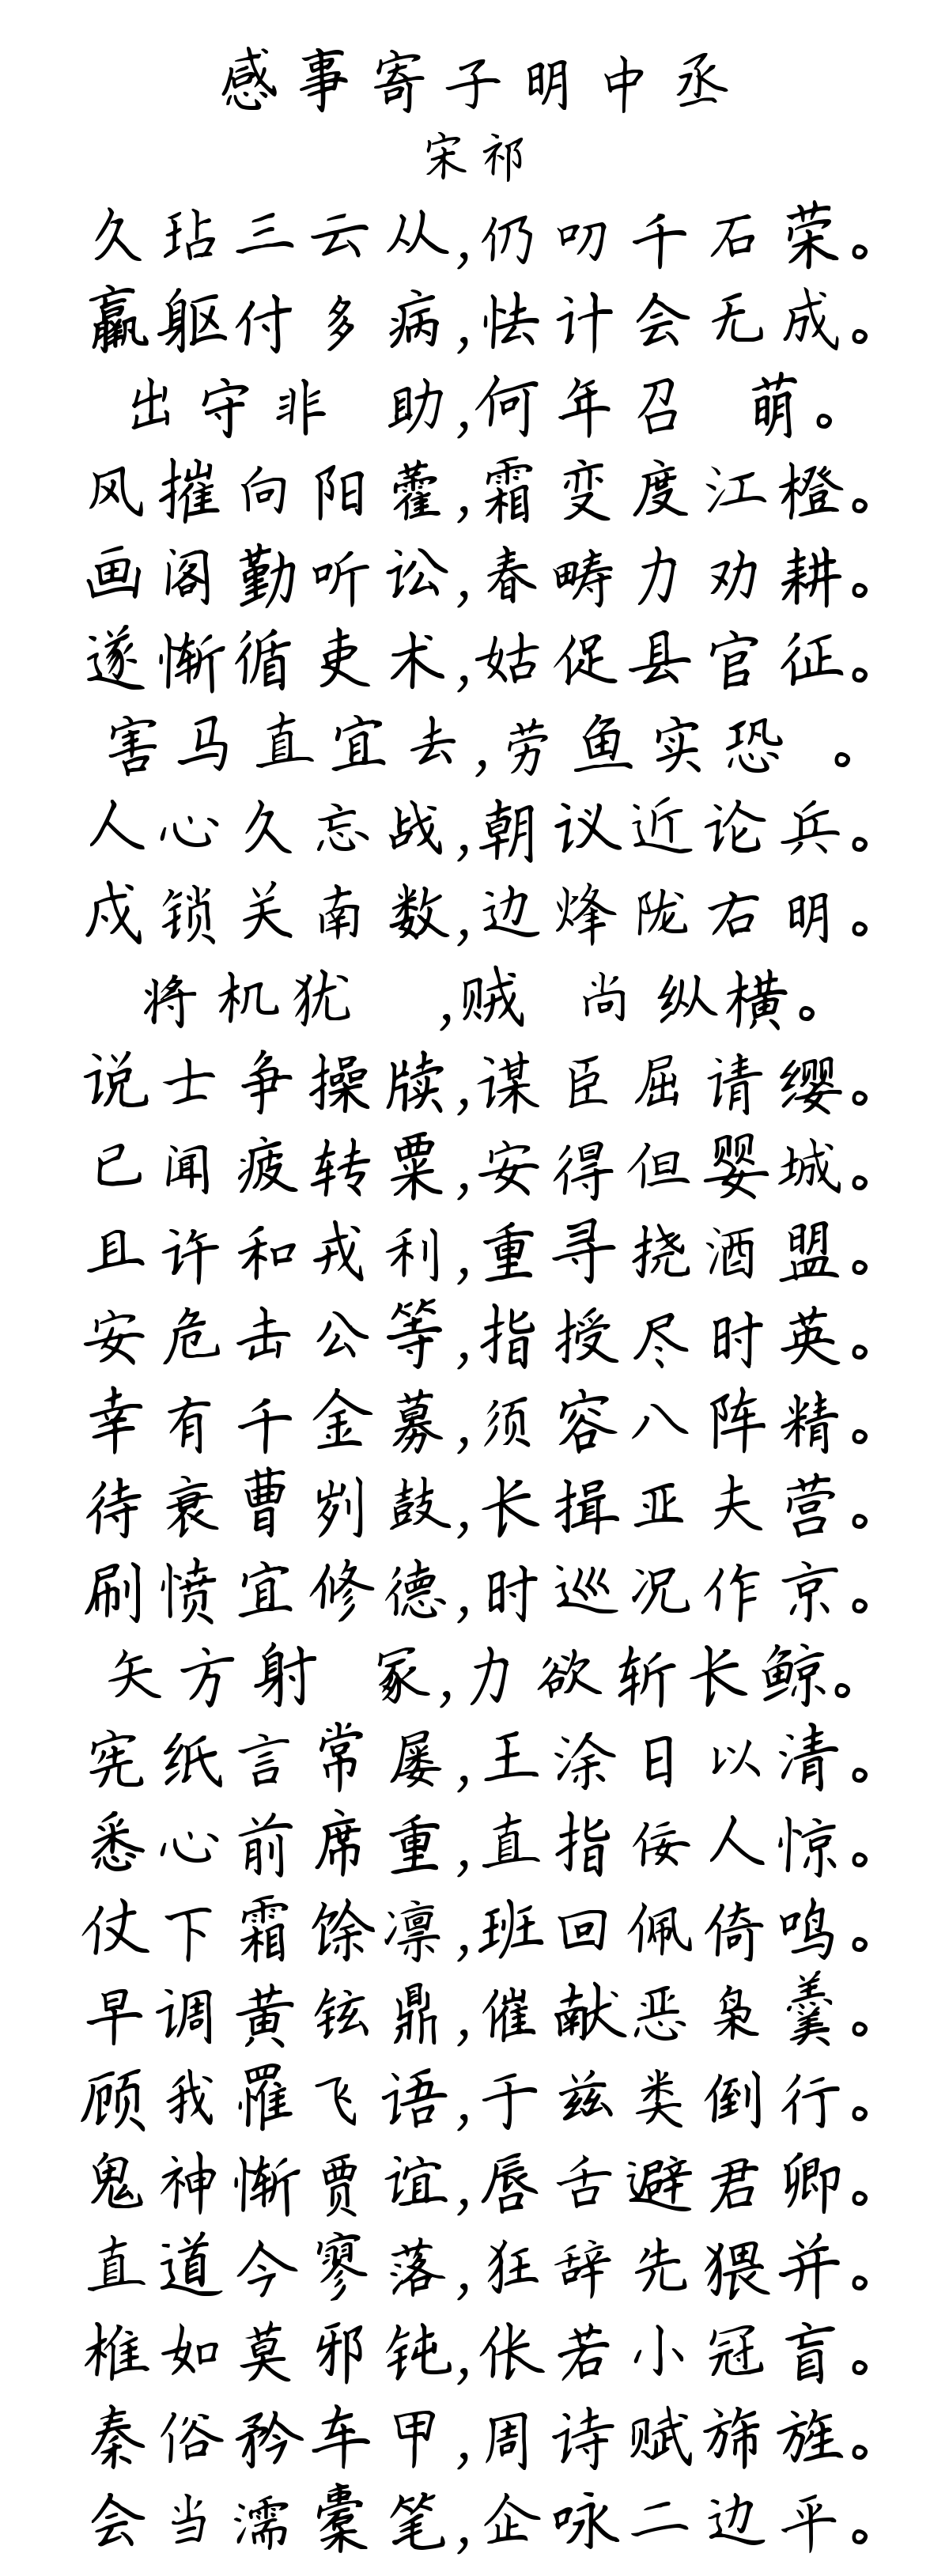 感事寄子明中丞
宋祁
久玷三云从,仍叨千石荣。
赢躯付多病,怯计会无成。
出守非 助,何年召 萌。
风摧向阳藿,霜变度江橙。
画阁勤听讼,春畴力劝耕。
遂惭循吏术,姑促县官征。
害马直宜去,劳鱼实恐 。
人心久忘战,朝议近论兵。
戍锁关南数,边烽陇右明。
将机犹 ,贼 尚纵横。
说士争操牍,谋臣屈请缨。
已闻疲转粟,安得但婴城。
且许和戎利,重寻挠酒盟。
安危击公等,指授尽时英。
幸有千金募,须容八阵精。
待衰曹刿鼓,长揖亚夫营。
刷愤宜修德,时巡况作京。
矢方射 冢,力欲斩长鲸。
宪纸言常屡,王涂日以清。
悉心前席重,直指佞人惊。
仗下霜馀凛,班回佩倚鸣。
早调黄铉鼎,催献恶枭羹。
顾我罹飞语,于兹类倒行。
鬼神惭贾谊,唇舌避君卿。
直道今寥落,狂辞先猥并。
椎如莫邪钝,伥若小冠盲。
秦俗矜车甲,周诗赋旆旌。
会当濡橐笔,企咏二边平。